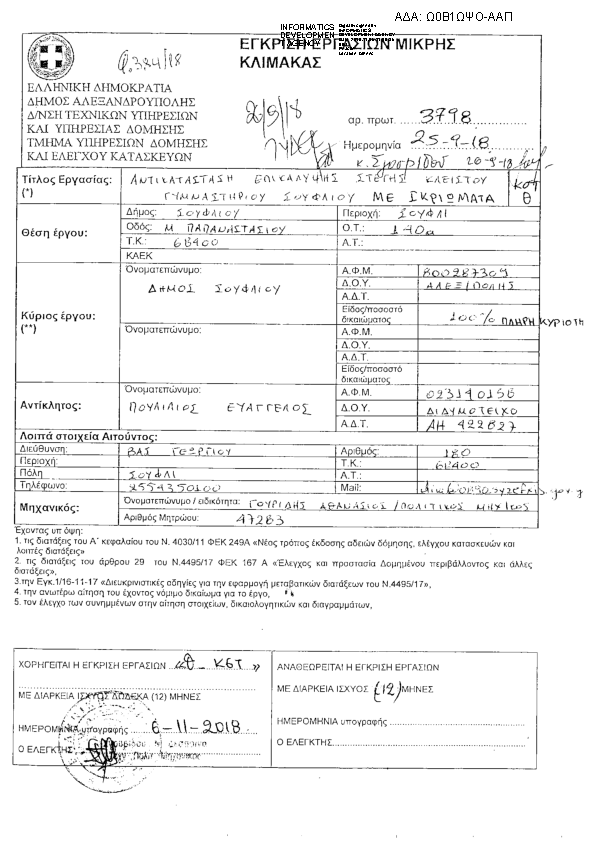 ΑΔΑ: Ω0Β1ΩΨΟ-ΑΑΠ
INFORMATICS
DEVELOPMEN
AGENCY
ΕΓΚΡΙΣΗ ΕΡΓΑΣΙΩΝ ΜΙΚΡΗΣ
ΚΛΙΜΑΚΑΣ
Φ.324/18
ΕΛΛΗΝΙΚΗ ΔΗΜΟΚΡΑΤΙΑ
ΔΗΜΟΣ ΑΛΕΞΑΝΔΡΟΥΠΟΛΗΣ
Δ/ΝΣΗ ΤΕΧΝΙΚΩΝ ΥΠΗΡΕΣΙΩΝ
ΚΑΙ ΥΠΗΡΕΣΙΑΣ ΔΟΜΗΣΗΣ
ΤΜΗΜΑ ΥΠΗΡΕΣΙΩΝ ΔΟΜΗΣΗΣ
ΚΑΙ ΕΛΕΓΧΟΥ ΚΑΤΑΣΚΕΥΩΝ
αρ. πρωτ. 3798
Ημερομηνία 25-9-18
26-9-18
Τίτλος Εργασίας: ΑΝΤΙΚΑΤΑΣΤΑΣΗ ΕΠΙΚΑΛΥΨΗΣ ΣΤΕΓΗΣ ΚΛΕΙΣΤΟΥ
(*) ΓΥΜΝΑΣΤΗΡΙΟΥ ΣΟΥΦΛΙΟΥ ΜΕ ΙΚΡΙΩΜΑΤΑ
Θέση έργου:
Δήμος: ΣΟΥΦΛΙΟΥ Περιοχή: ΣΟΥΦΛΙ
Οδός: Μ ΠΑΠΑΝΑΣΤΑΣΙΟΥ Ο.Τ.: 170α
Τ.Κ.: 68400 Α.Τ.:
ΚΑΕΚ
Κύριος έργου:
(**)
Όνοματεπώνυμο: ΔΗΜΟΣ ΣΟΥΦΛΙΟΥ
Α.Φ.Μ. 800287309
Δ.Ο.Υ. ΑΛΕΞ/ΠΟΛΗΣ
Α.Δ.Τ.
Είδος/ποσοστό δικαιώματος 100% ΠΛΗΡΗ ΚΥΡΙΟΤΗ
Όνοματεπώνυμο:
Α.Φ.Μ.
Δ.Ο.Υ.
Α.Δ.Τ.
Είδος/ποσοστό δικαιώματος:
Αντίκλητος:
Όνοματεπώνυμο: ΠΟΥΛΙΛΙΟΣ ΕΥΑΓΓΕΛΟΣ
Α.Φ.Μ. 023140156
Δ.Ο.Υ. ΔΙΔΥΜΟΤΕΙΧΟ
Α.Δ.Τ. ΑΗ 422827
Λοιπά στοιχεία Αιτούντος:
Διεύθυνση: ΒΑΣ ΓΕΩΡΓΙΟΥ Αριθμός: 180
Περιοχή: Τ.Κ.: 68400
Πόλη ΣΟΥΦΛΙ Α.Τ.:
Τηλέφωνο: 2554350100 Mail:
Μηχανικός:
Όνοματεπώνυμο / ειδικότητα: ΓΟΥΡΙΔΗΣ ΑΘΑΝΑΣΙΟΣ /ΠΟΛΙΤΙΚΟΣ ΜΗΧ/ΚΟΣ
Αριθμός Μητρώου: 47283
Έχοντας υπ όψη:
1. τις διατάξεις του Α΄ κεφαλαίου του Ν. 4030/11 ΦΕΚ 249Α «Νέος τρόπος έκδοσης αδειών δόμησης, ελέγχου κατασκευών και
λοιπές διατάξεις»
2. τις διατάξεις του άρθρου 29 του Ν.4495/17 ΦΕΚ 167 Α «Έλεγχος και προστασία Δομημένου περιβάλλοντος και άλλες
διατάξεις»,
3.την Εγκ.1/16-11-17 «Διευκρινιστικές οδηγίες για την εφαρμογή μεταβατικών διατάξεων του Ν.4495/17»,
4. την ανωτέρω αίτηση του έχοντος νόμιμο δικαίωμα για το έργο,
5. τον έλεγχο των συνημμένων στην αίτηση στοιχείων, δικαιολογητικών και διαγραμμάτων,
ΧΟΡΗΓΕΙΤΑΙ Η ΕΓΚΡΙΣΗ ΕΡΓΑΣΙΩΝ
ΜΕ ΔΙΑΡΚΕΙΑ ΙΣΧΥΟΣ ΔΩΔΕΚΑ (12) ΜΗΝΕΣ
ΗΜΕΡΟΜΗΝΙΑ υπογραφής 6-11-2018
Ο ΕΛΕΓΚΤΗΣ
ΑΝΑΘΕΩΡΕΙΤΑΙ Η ΕΓΚΡΙΣΗ ΕΡΓΑΣΙΩΝ
ΜΕ ΔΙΑΡΚΕΙΑ ΙΣΧΥΟΣ (12) ΜΗΝΕΣ
ΗΜΕΡΟΜΗΝΙΑ υπογραφής
Ο ΕΛΕΓΚΤΗΣ